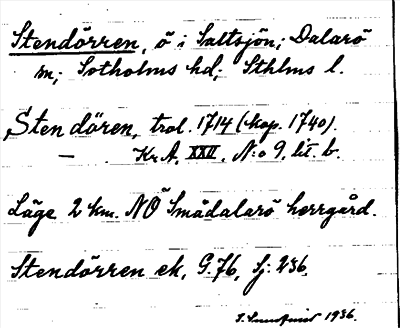 Stendörren, ö i Saltsjön; Dalarö
m; Sotholms hd; Sthlms l.
Sten dören, trol. 1714 (kop. 1740).
— Kr A, XXII, N:o 9, lit. b.
Läge 2 km. NÖ Smådalarö herrgård.
Stendörren ek, G. 76, Sj: 236.
1936.